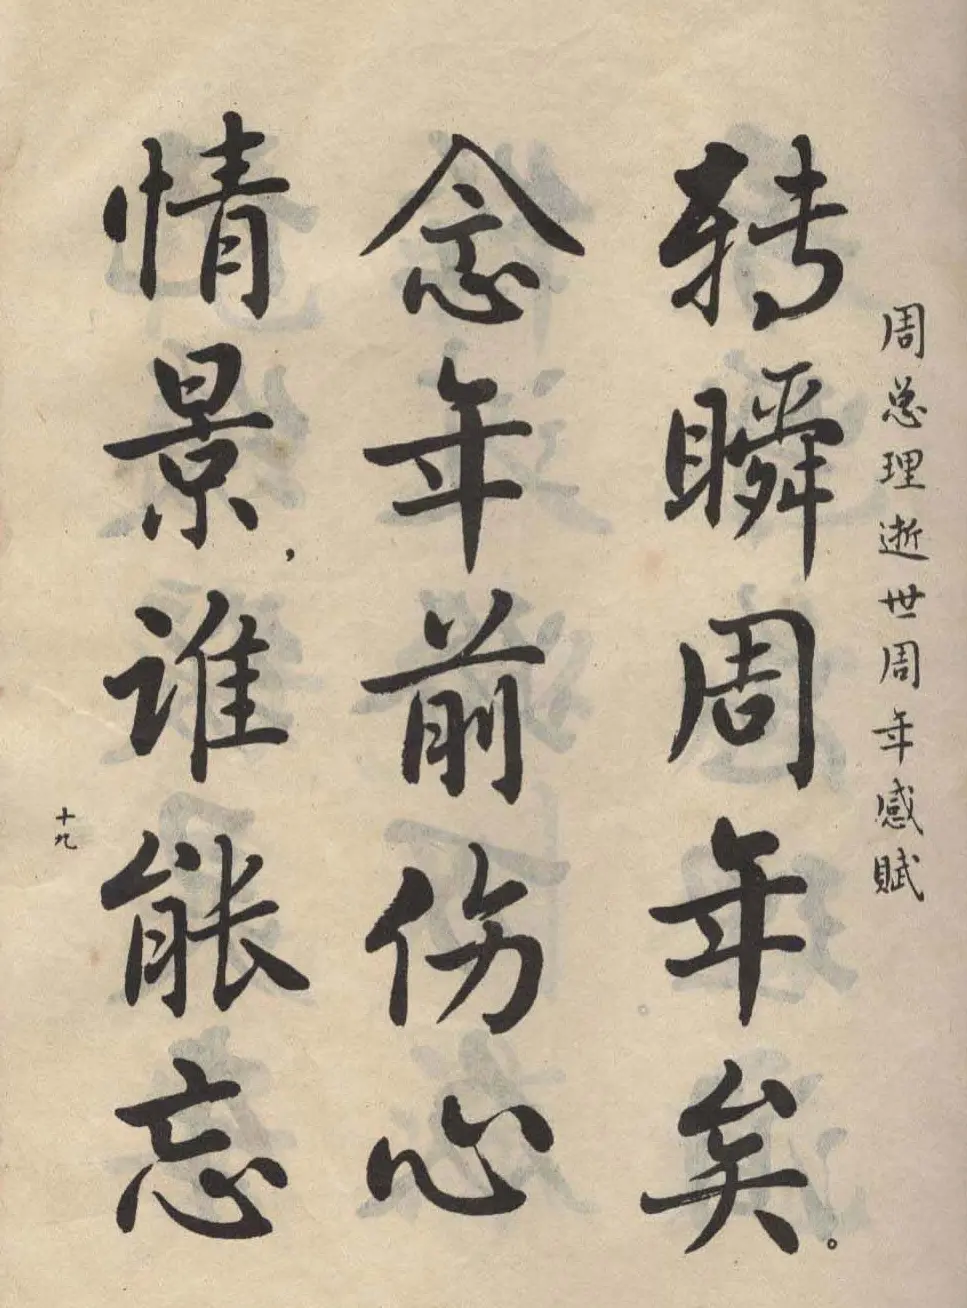 周总理逝世周年感赋
转瞬周年矣。
念年前伤心
情景，谁能忘
十九